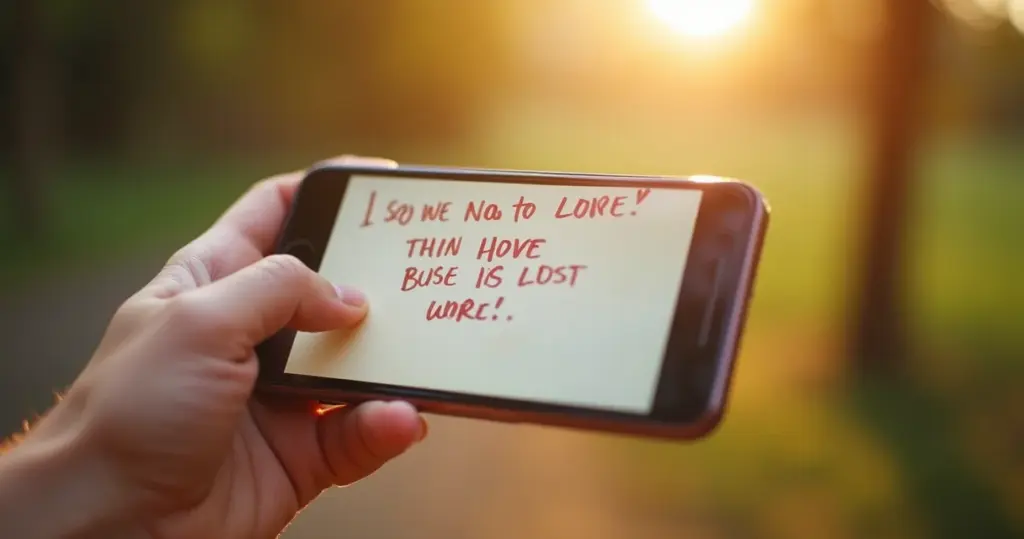 I SO WE NO TO LOPE!
THIN HOVE
BUSE IS LOST
WORC!.